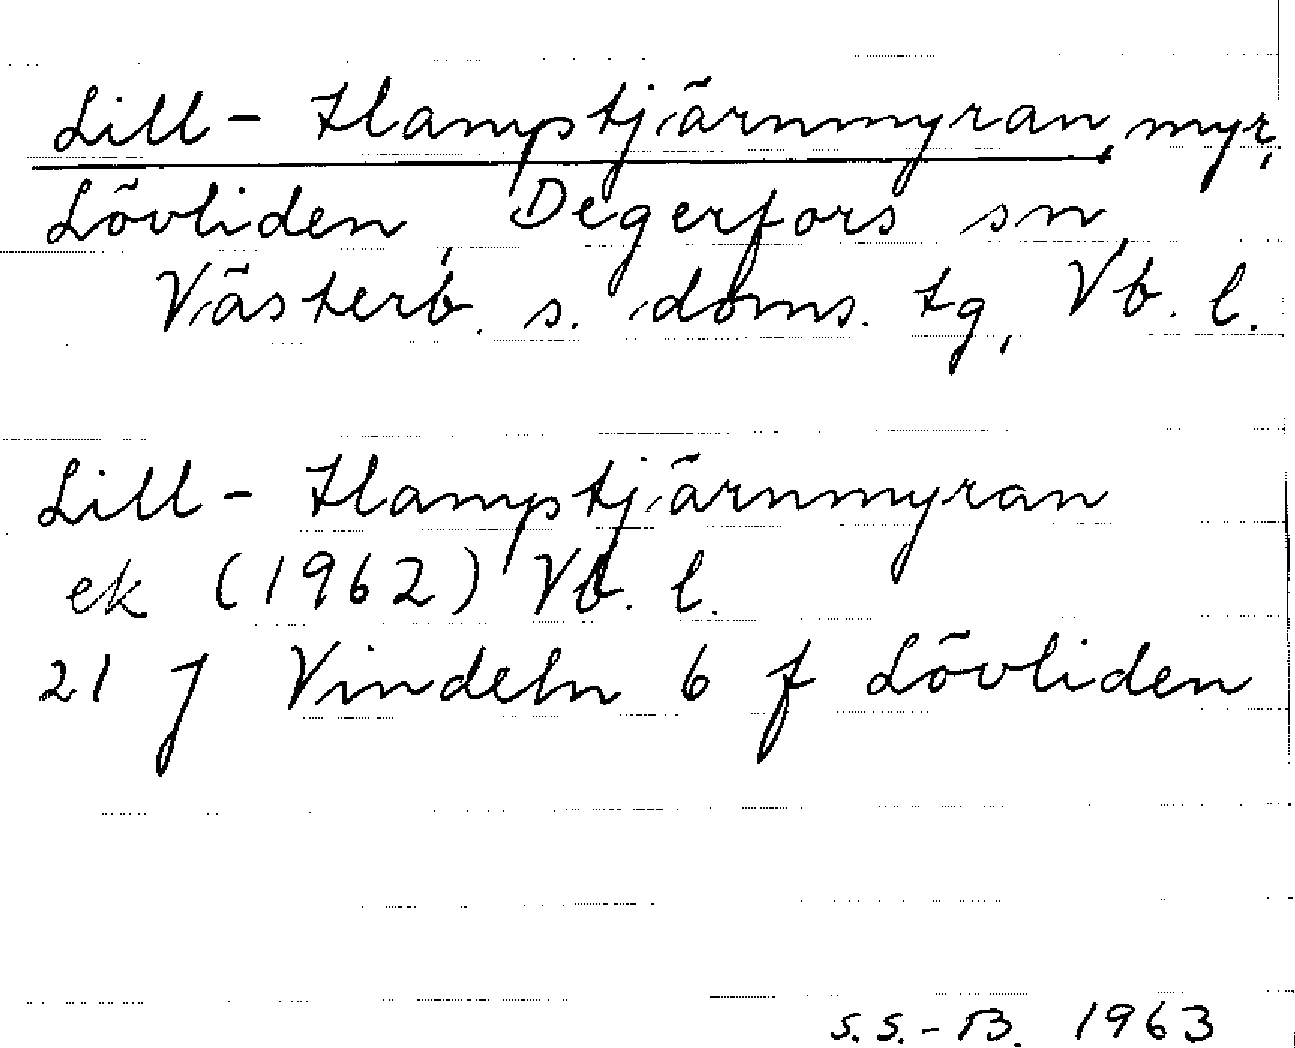 Lill-Hampstjärnmyran, myr,
Lövliden, Degerfors sn,
Västerb. s. doms. tg, Vb. l.
Lill-Hampstjärnmyran
ek (1962) Vb. l.
21 J Vindeln 6 f Lövliden
S.S.-B. 1963